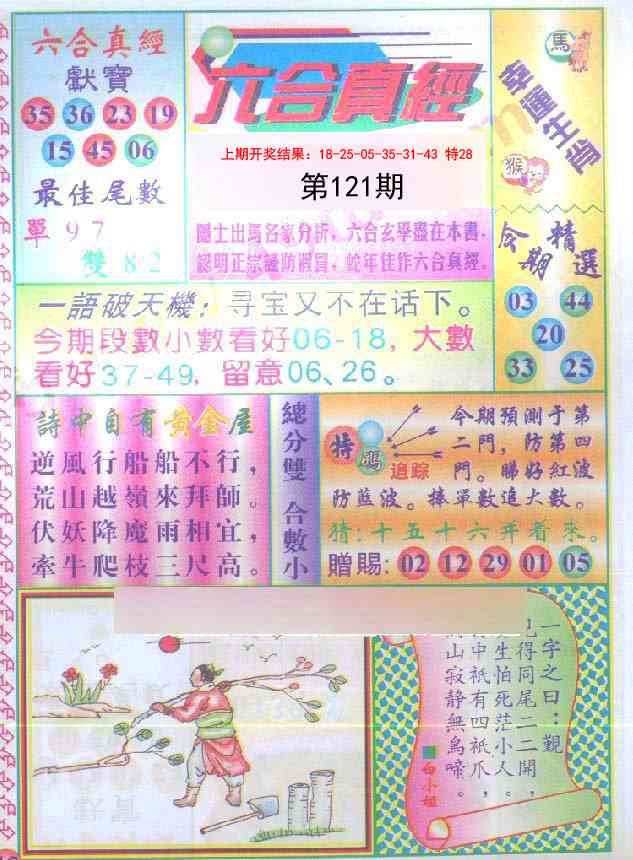 六合真經
獻寶
35 36 23 19
15 45 06
最佳尾數
單 9 7
雙 8 2
六合真經
上期开奖结果：18-25-05-35-31-43 特28
第121期
隱士出馬名家分析，六合玄學盡在本書．
認明正宗謹防假冒，蛇年佳作六合真經．
馬
幸運生肖
猴
今期精選
03 44
20
33 25
一語破天機：寻宝又不在话下。
今期段數小數看好06-18，大數
看好37-49，留意06、26。
詩中自有黄金屋
逆風行船船不行，
荒山越嶺來拜師。
伏妖降魔雨相宜，
牽牛爬枝三尺高。
總分雙 合數小
特
追踪
今期預測于第
二門，防第四
門。睇好紅波
防藍波。捧單數追大數。
猜：十五十六开看來。
贈賜：02 12 29 01 05
一字之曰：觀
得同尾二二開，
生怕死茫小人
中祇有四祇爪，
山寂静無鳥啼。
白小姐